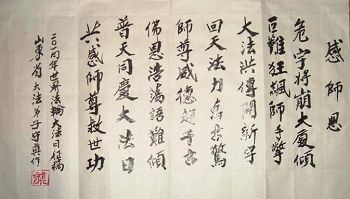 感師恩
危宇將崩大廈傾
巨難狂飆師手擎
大法洪傳開新宇
回天法力鬼神驚
師尊威德超千古
佛恩浩蕩語難傾
普天同慶大法日
共感師尊救世功
二〇一〇年世界法輪大法日恭稿
山東省大法弟子守真作